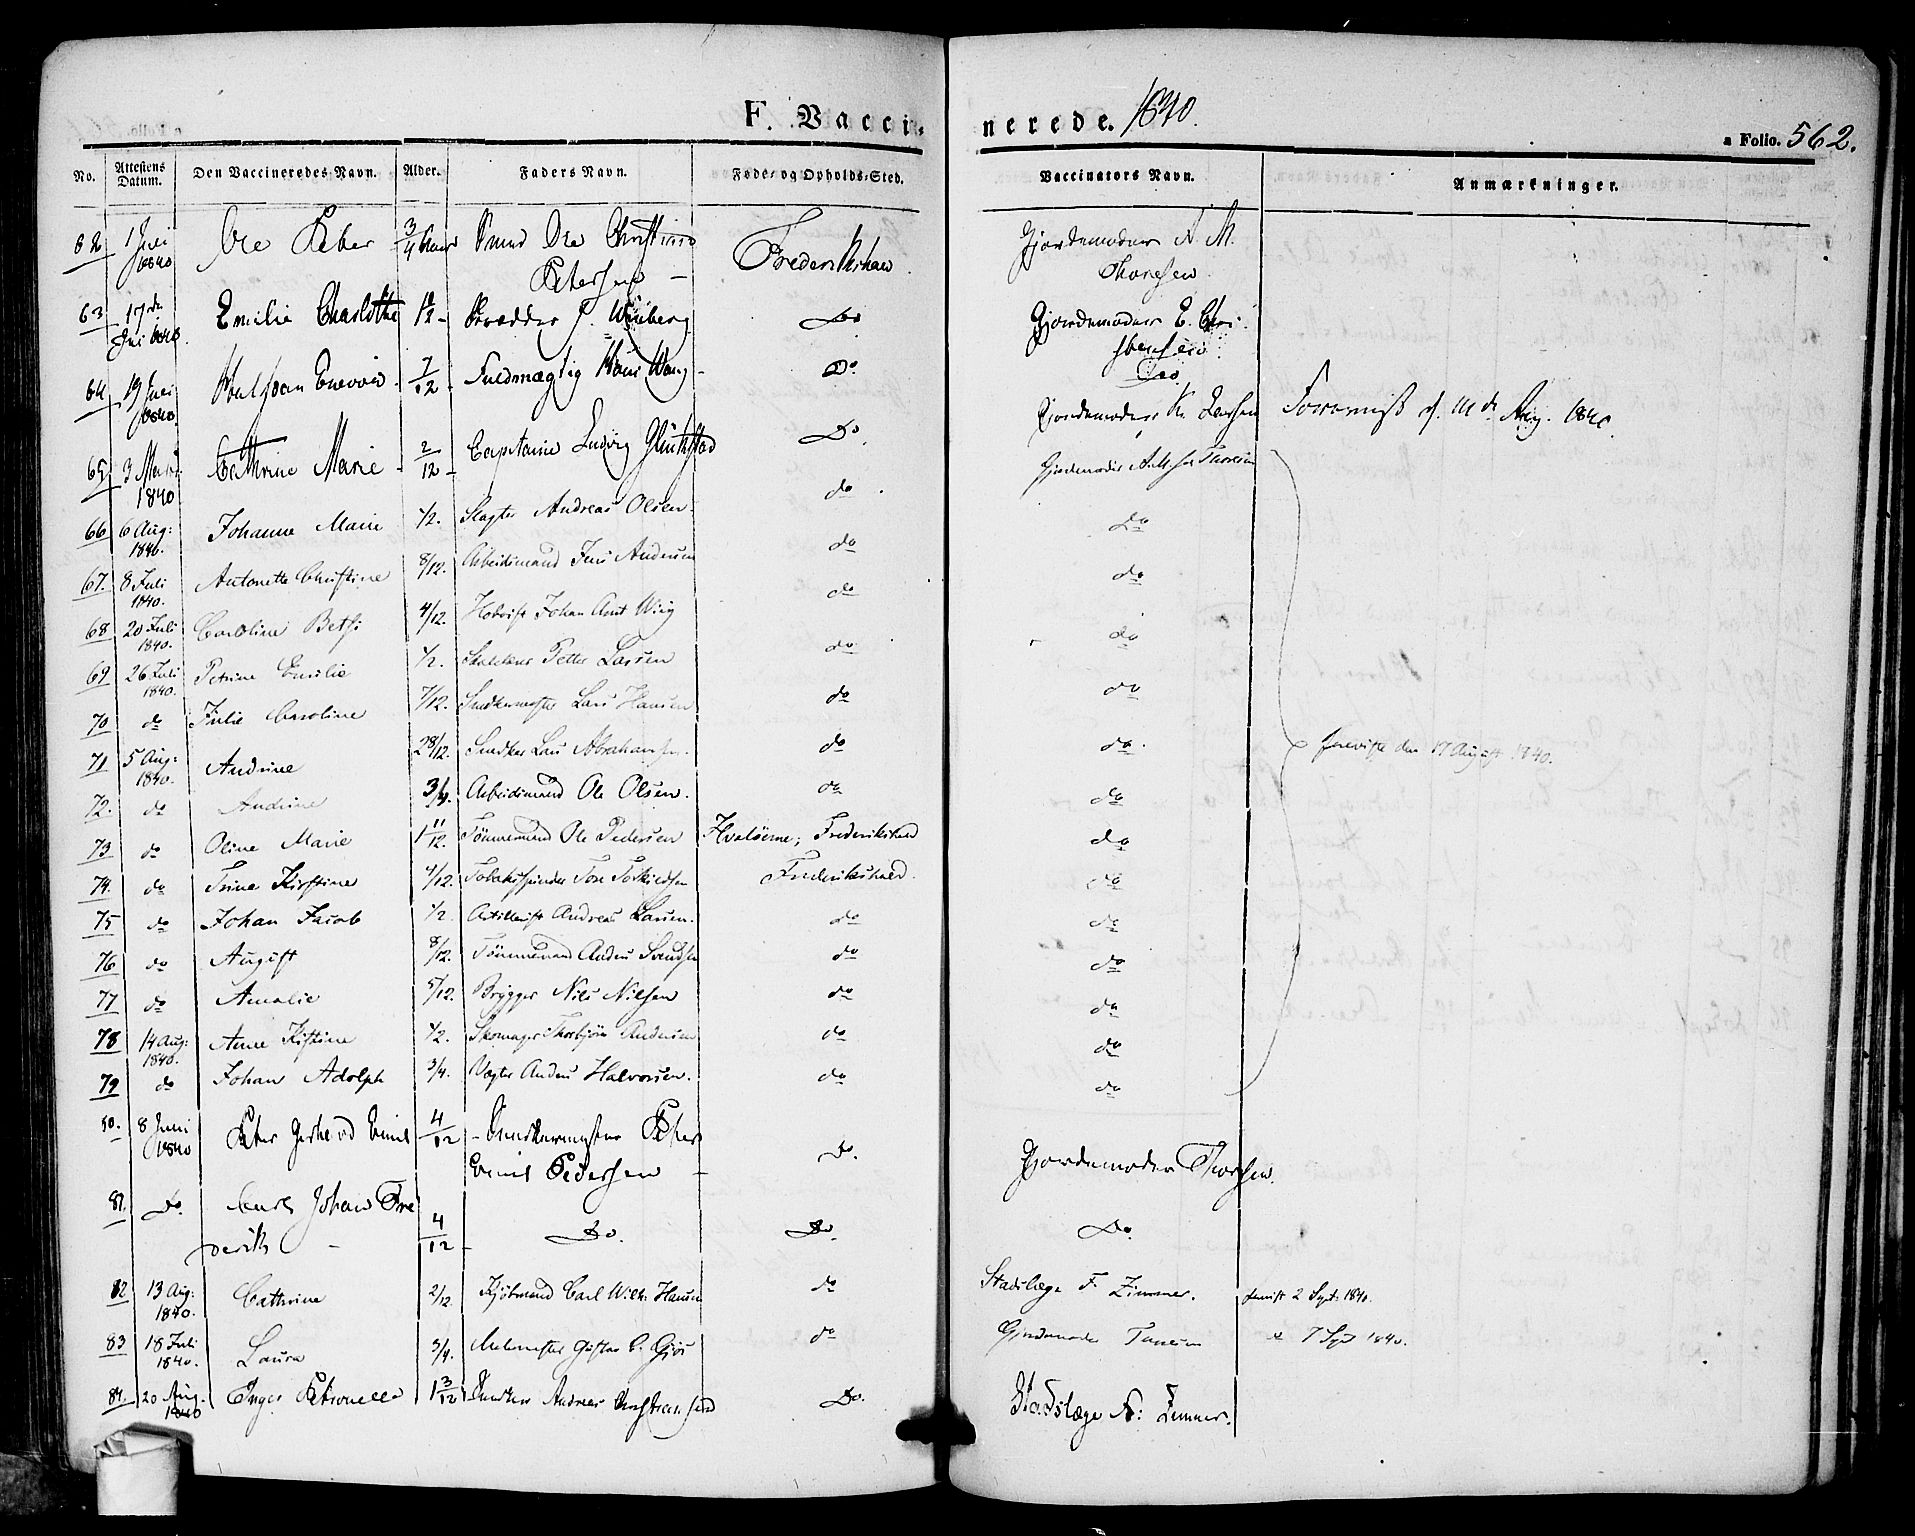 F. Vacci-
nerede. 1840.
a Folio. 562.
No. Attestens Datum. Den Vaccineredes Navn. Alder. Faders Navn. Føde- og Opholds-Sted. Vaccinators Navn. Anmærkninger.
62 1 Juni 1840 Ole Peber 3/4 Aar Ole Christian Petersen Frederikshald Gjordemoder A. M. Thoresen
63 17de Juni 1840 Emilie Charlotte 1/2 Skrædder J. Wiiberg Do Gjordemoder E. Christensen
64 19 Juni 1840 7/12 Fuldmægtig Wang Do Do
65 3 1840 Cathrine Marie 2/12 Capitaine Ludvig Do Gjordemoder K. Larsen Forevist d. 11te Aug. 1840.
66 6 Aug: 1840. Johanne Marie 1/2. Slagter Andreas Olsen. do Gjordemoder Thoresen
67. 8 Juli 1840. Antonette Christine 8/12. Arbeidsmand Jens Andersen do do
68 20 Juli 1840. Caroline Betsi 4/12. Johan Wiig do do
69 26 Juli 1840. Petrine Emilie 1/2. Petter Larsen do do
70 do Julie Caroline 7/12. Snedkermester Lars Hansen do do
71 5 Aug: 1840. Andrine 2 8/12. Snedker Lars Abrahamsen. do do. foreviste den 17 August 1840.
72. do Andrine 3/4. Arbeidsmand Ole Olsen. do do
73 do Oline Marie 1 11/12. Tømmermand Ole Pedersen Hvaløerne; Frederikshald do
74. do Trine Kirstine 4/12. Tobaksspinder Tore Frederikshald. do
75 do Johan Jacob 1/2. Artillerist Andreas Larsen. do do
76 do August 8/12. Tømmermand Anders Svendsen do do
77 do Amalie 5/12. Brygger Nils Nilsen do do
78 14 Aug: 1840. Anne Kistine 1/2. Skomager Thorbjørn Andersen do do
79 do Johan Adolph 3/4. Vægter Anders Halvorsen. do do
80. 8 Juni 1840 Peter Gerhard Emil 4/12 Snedkermester Peter Emil Pedersen Do. Gjordemoder Thoresen.
81. Do. Carl Johan Frederik 4/12 Do. Do. Do.
82 13 Aug: 1840. Cathrine 2/12. Kjøbmand Carl Wilh: Hansen do Stadslæge F. Zimmer. forevist 2 Sept: 1840.
83 18 Juli 1840. Laura 3/4. Malermester Gustav do Gjordemoder 7 Sept 1840.
84. 20 Aug. 1840 Inger Petronelle 1 3/12 Snedker Andreas Christiansen Do. Stadslæge F: Zimmer.